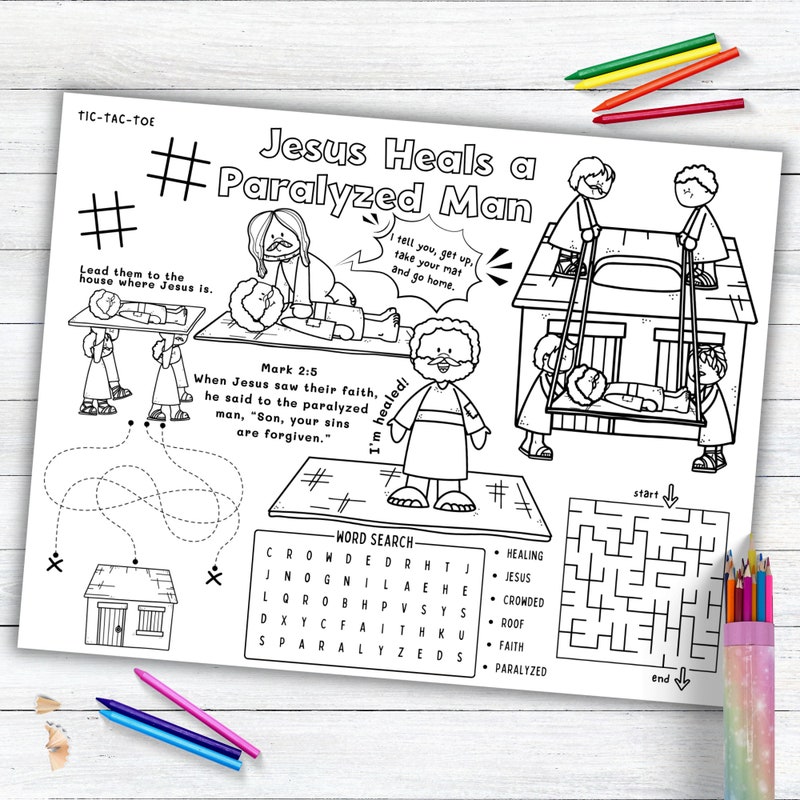 TIC-TAC-TOE
Jesus Heals a
Paralyzed Man
I tell you, get up,
take your mat
and go home.
Lead them to the
house where Jesus is.
Mark 2:5
When Jesus saw their faith,
he said to the paralyzed
man, “Son, your sins
are forgiven.”
I'm healed!
WORD SEARCH
C R O W D E D R H T J
J N O G N I L A E H E
L Q R O B H P V S Y S
D X Y C F A I T H K U
S P A R A L Y Z E D S
• HEALING
• JESUS
• CROWDED
• ROOF
• FAITH
• PARALYZED
start
end